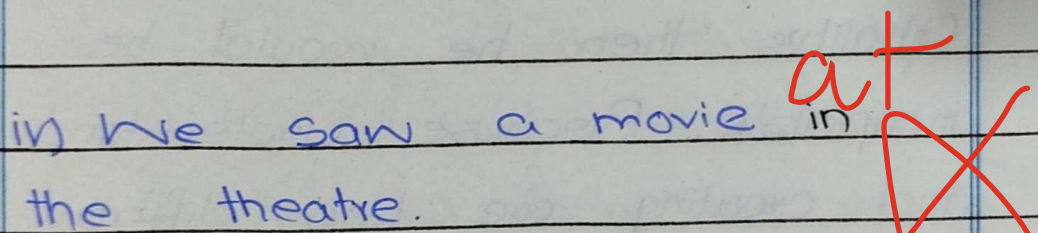 at
in) We saw a movie in
the theatre.